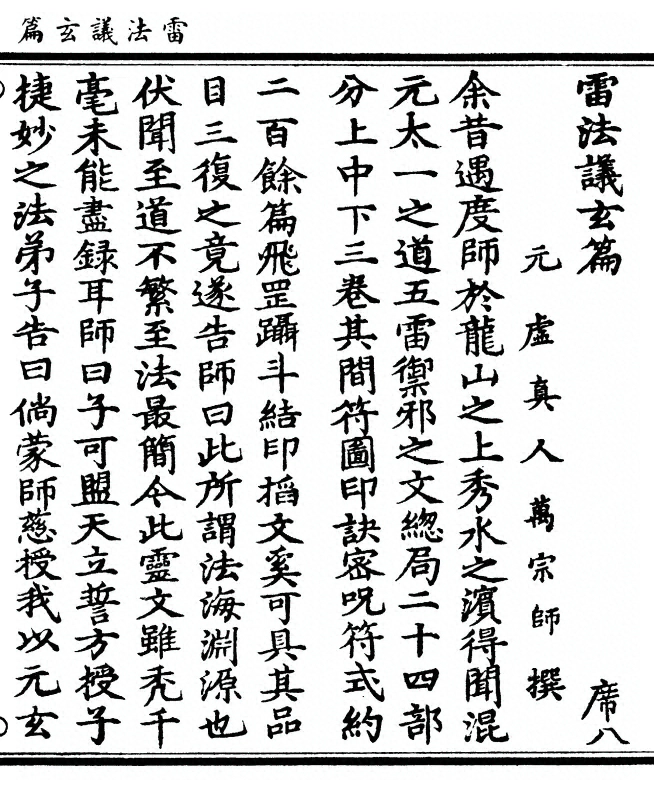 雷法議玄篇
雷法議玄篇 席八
元虛真人萬宗師撰
余昔遇度師於龍山之上秀水之濱得聞混
元太一之道五雷禦邪之文總局二十四部
分上中下三卷其間符圖印訣密呪符式約
二百餘篇飛罡躡斗結印搯文奚可具其品
目三復之竟遂告師曰此所謂法海淵源也
伏聞至道不繁至法最簡令此靈文雖禿千
毫未能盡録耳師曰子可盟天立誓方授子
捷妙之法弟子告曰倘蒙師慈授我以元玄